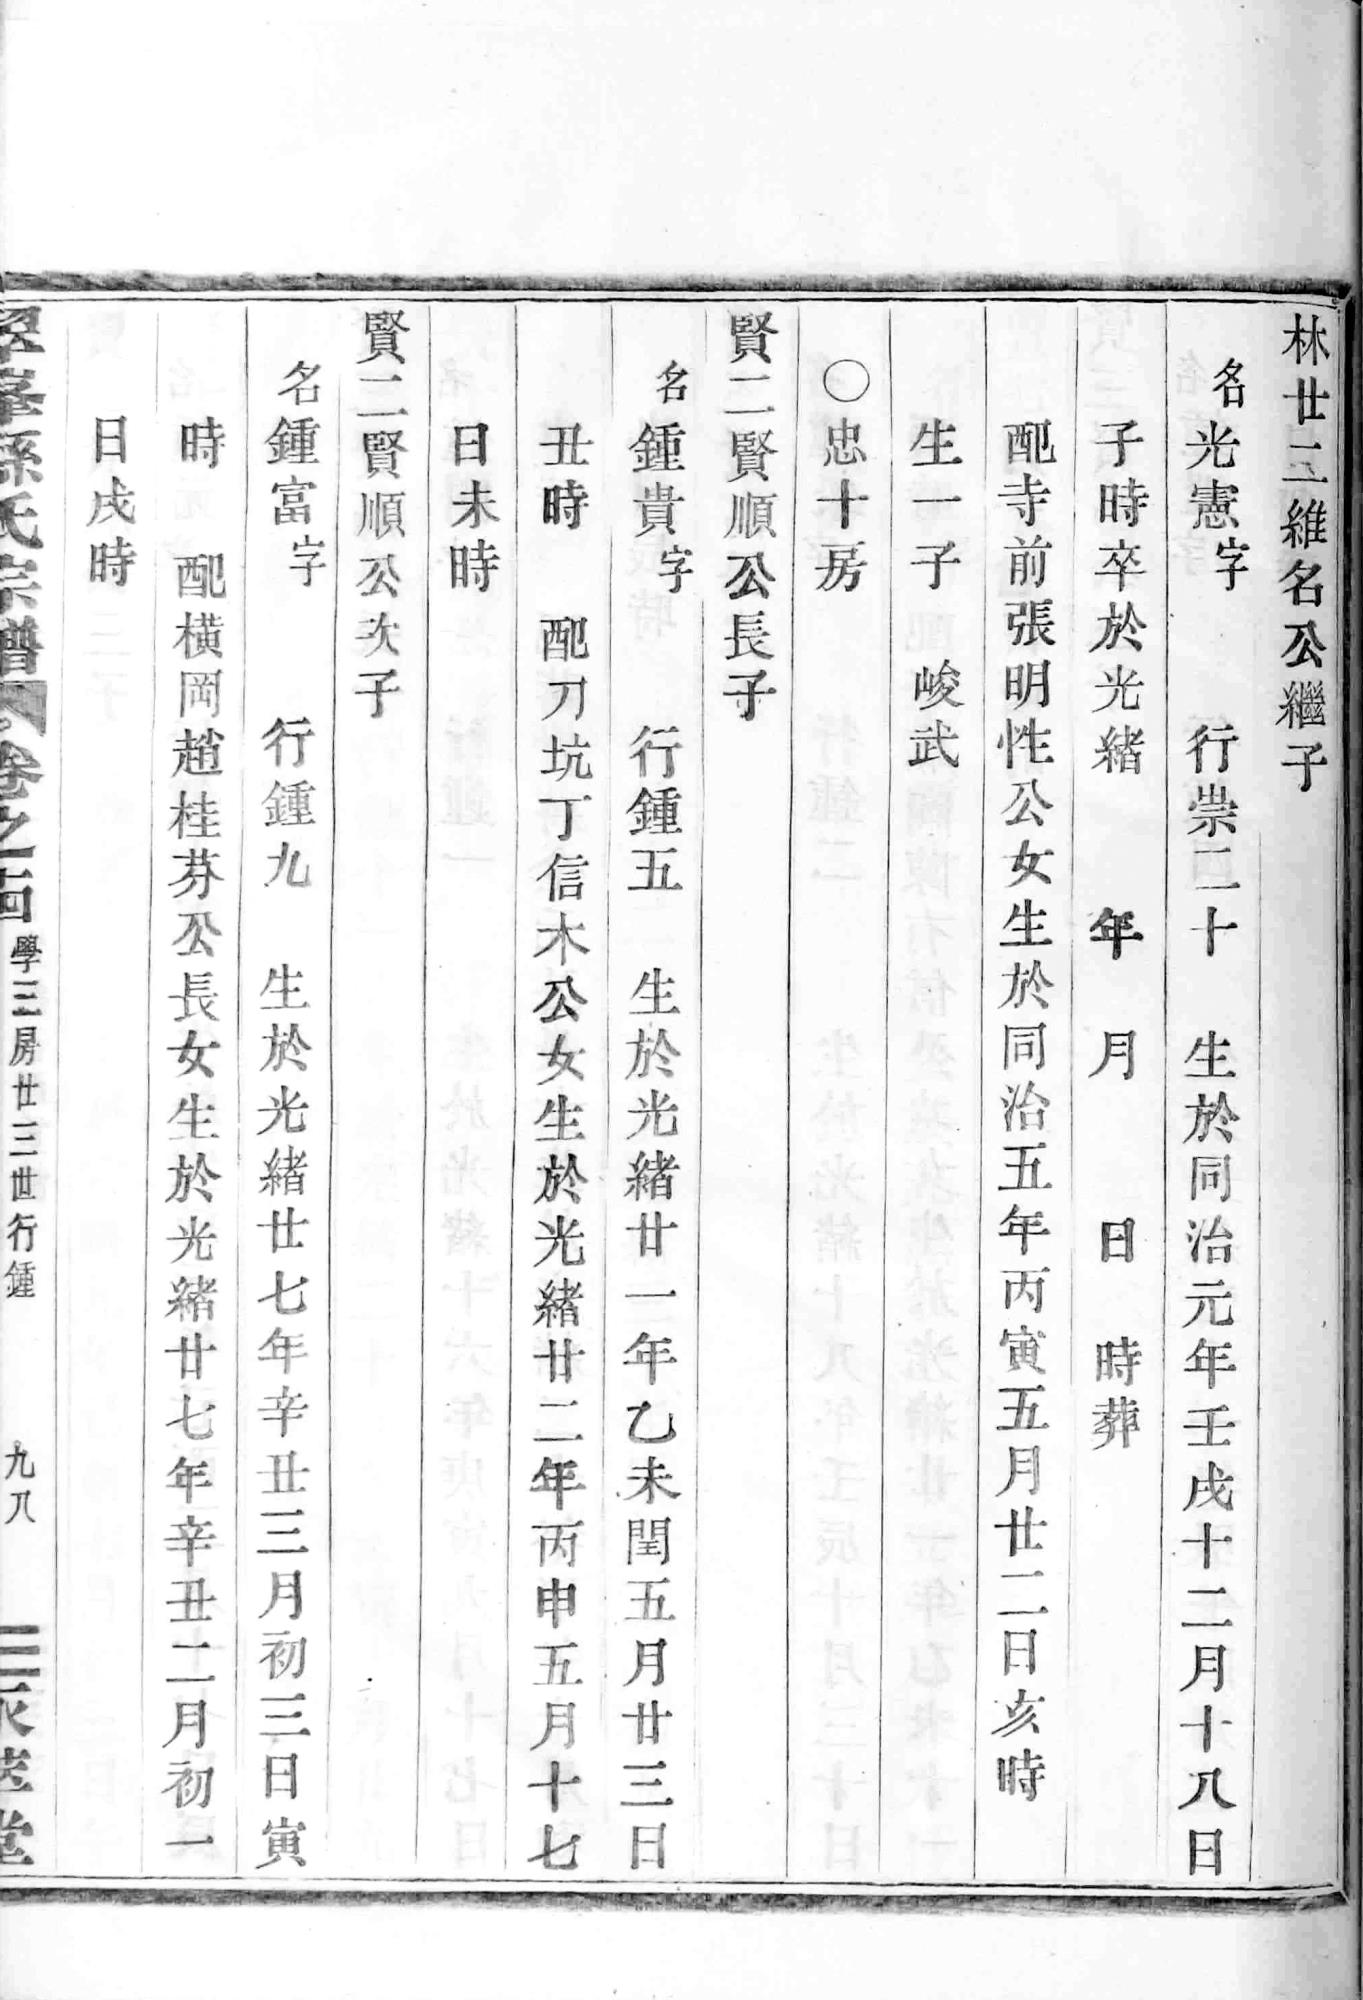 林廿二維名公繼子
名光憲字　行崇二十　生於同治元年壬戌十二月十八日
子時卒於光緒　年　月　日　時葬
配寺前張明性公女生於同治五年丙寅五月廿二日亥時
生一子　峻武
〇忠十房
賢二賢順公長子
名鍾貴字　行鍾五　生於光緒廿一年乙未閏五月廿三日
丑時　配刀坑丁信木公女生於光緒廿二年丙申五月十七
日未時
賢二賢順公次子
名鍾富字　行鍾九　生於光緒廿七年辛丑三月初三日寅
時　配橫岡趙桂芬公長女生於光緒廿七年辛丑二月初一
日戌時
峯孫氏宗譜　卷之十四　學三房廿三世行鍾　九八　三永堂